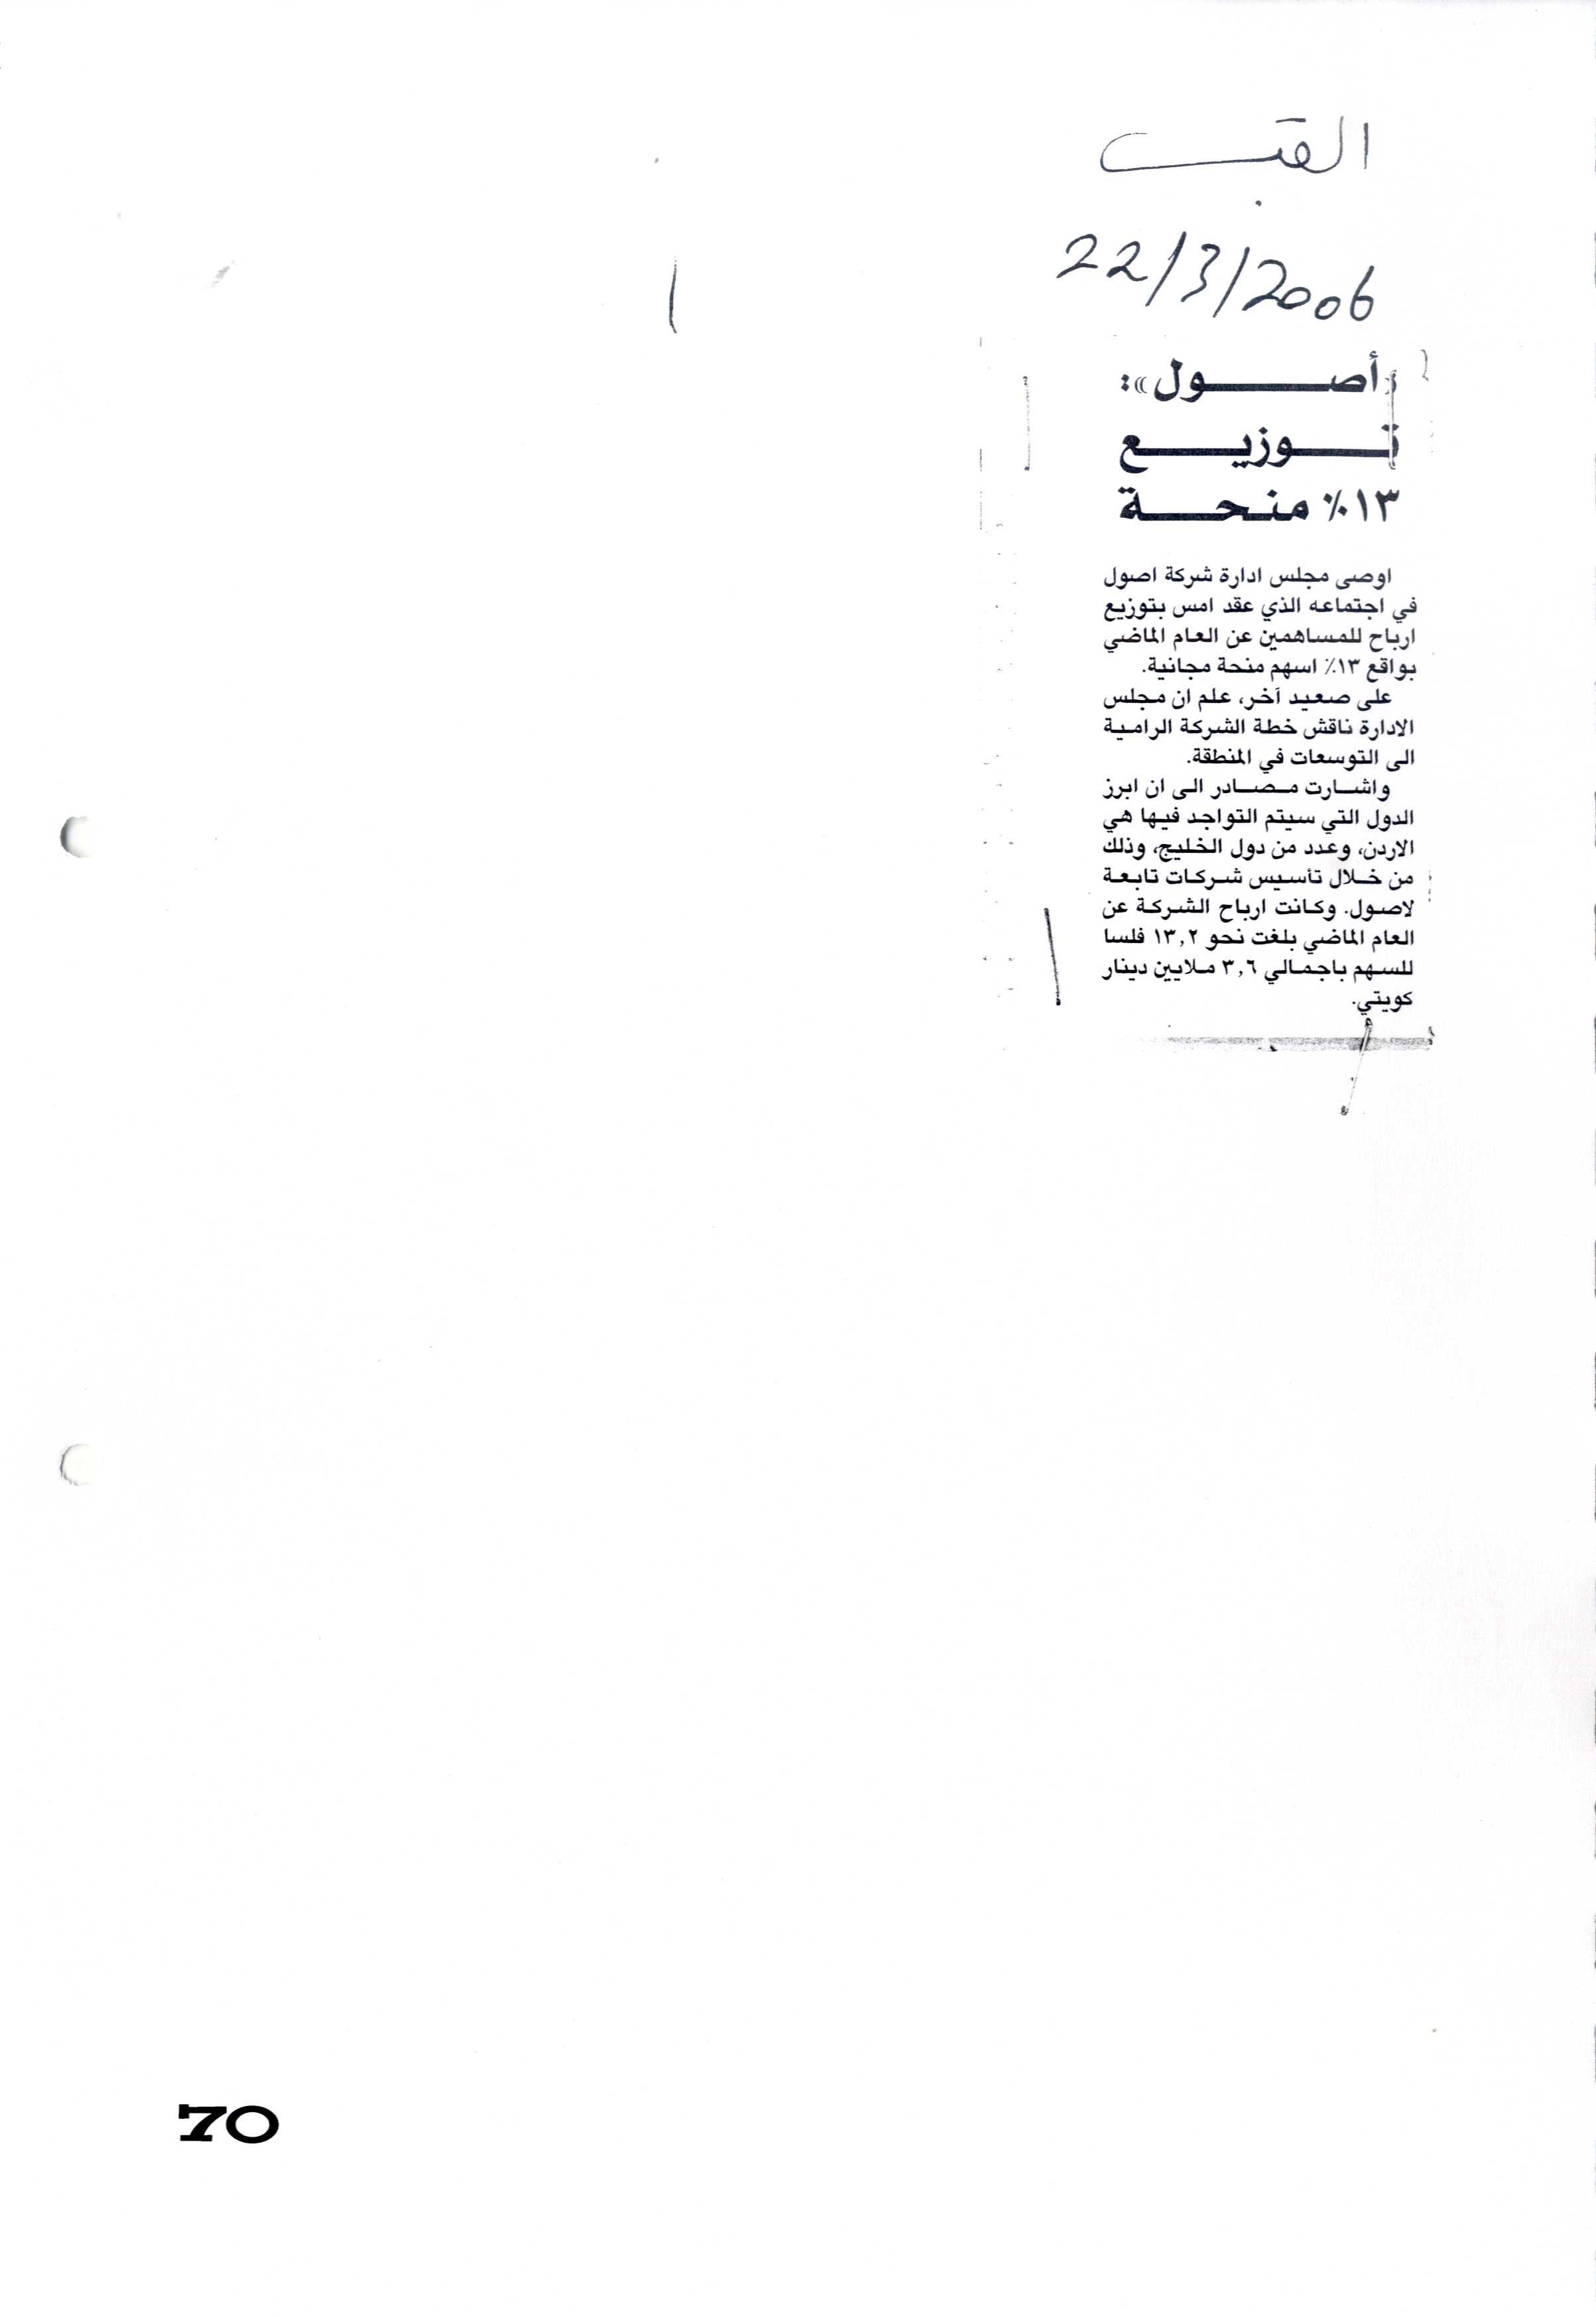 القبس
22/3/2006
«أصول»:
توزيع
١٣٪ منحة
اوصى مجلس ادارة شركة اصول
في اجتماعه الذي عقد امس بتوزيع
ارباح للمساهمين عن العام الماضي
بواقع ١٣٪ اسهم منحة مجانية.
على صعيد آخر، علم ان مجلس
الادارة ناقش خطة الشركة الرامية
الى التوسعات في المنطقة.
واشارت مصادر الى ان ابرز
الدول التي سيتم التواجد فيها هي
الاردن، وعدد من دول الخليج، وذلك
من خلال تأسيس شركات تابعة
لاصول. وكانت ارباح الشركة عن
العام الماضي بلغت نحو ١٣,٢ فلسا
للسهم باجمالي ٣,٦ ملايين دينار
كويتي.
70